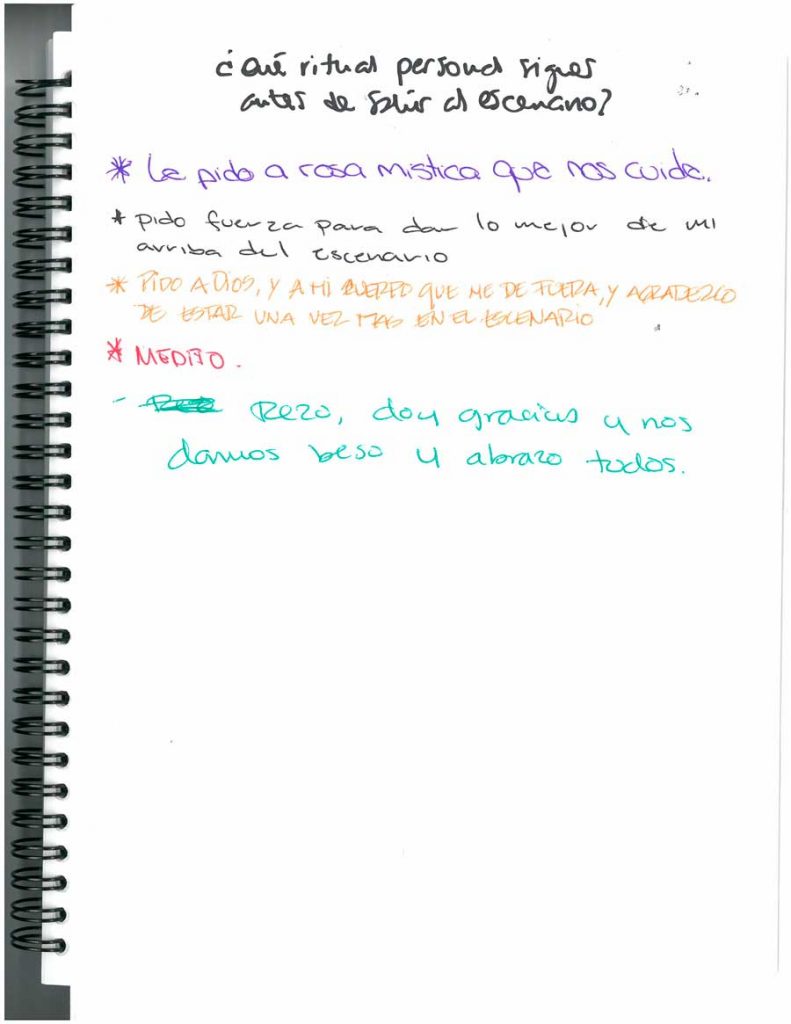 ¿Qué ritual personal sigues
antes de salir al escenario?
* Le pido a rosa mistica que nos cuide.
* pido fuerza para dar lo mejor de mi
arriba del escenario
* PIDO A DIOS, Y A MI CUERPO QUE ME DE FUERZA, Y AGRADEZCO
DE ESTAR UNA VEZ MAS EN EL ESCENARIO
* MEDITO.
- Rezo, doy gracias y nos
damos beso y abrazo todos.